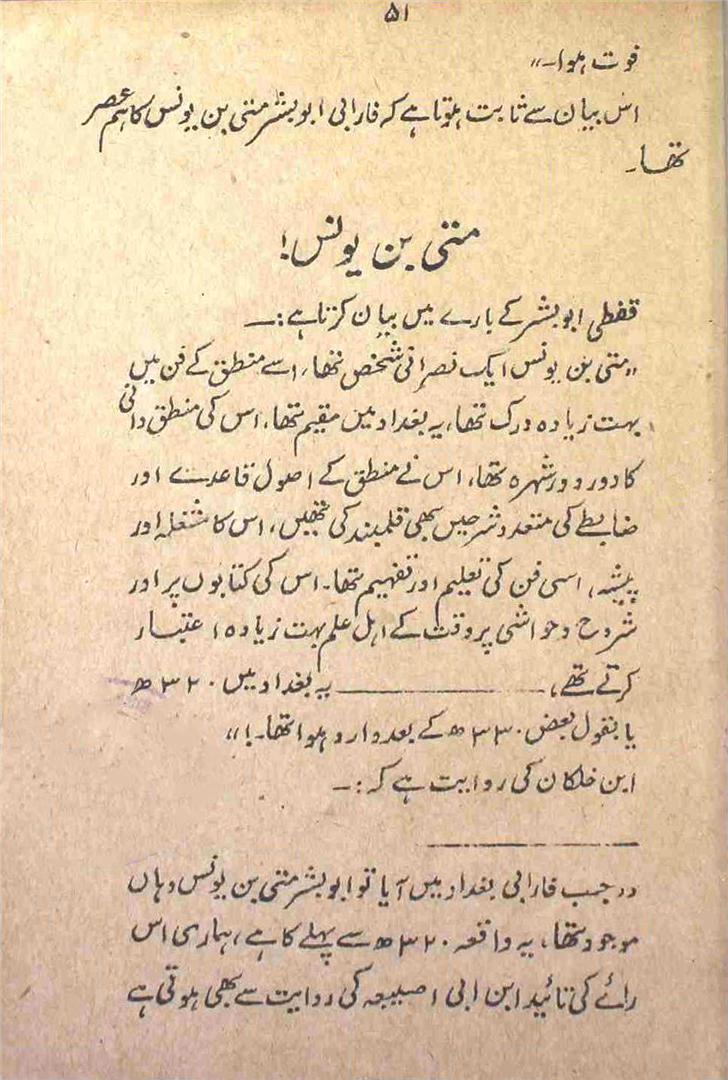 ۵۱
فوت ہوا۔"
اس بیان سے ثابت ہوتا ہے کہ فارابی ابو بشر متی بن یونس کا ہم عصر
تھا۔
متی بن یونس!
قفطی ابو بشر کے بارے میں بیان کرتا ہے:۔
"متی بن یونس ایک نصرانی شخص تھا، اسے منطق کے فن میں
بہت زیادہ درک تھا، یہ بغداد میں مقیم تھا، اس کی منطق دانی
کا دور دور شہرہ تھا، اس نے منطق کے اصول قاعدے اور
ضابطے کی متعدد شرحیں بھی قلمبند کی تھیں، اس کا مشغلہ اور
پیشہ، اسی فن کی تعلیم اور تفہیم تھا۔ اس کی کتابوں پر اور
شروح و حواشی پر وقت کے اہل علم بہت زیادہ اعتبار
کرتے تھے، ــــــــــ یہ بغداد میں ۳۲۰ھ
یا بقول بعض ۳۳۰ھ کے بعد وارد ہوا تھا۔!"
ابن خلکان کی روایت ہے کہ:۔
"جب فارابی بغداد میں آیا تو ابو بشر متی بن یونس وہاں
موجود تھا، یہ واقعہ ۳۲۰ھ سے پہلے کا ہے، ہماری اس
رائے کی تائید ابن ابی اصیبعہ کی روایت سے بھی ہوتی ہے